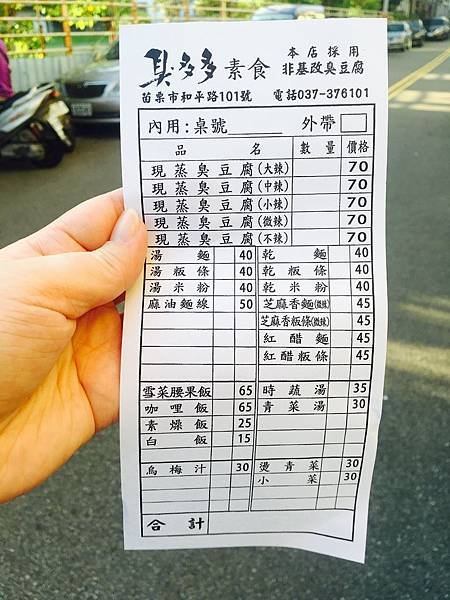 臭多多素食 本店採用
非基改臭豆腐
苗栗市和平路101號 電話037-376101
內用:桌號______ 外帶
品名 數量 價格
現蒸臭豆腐(大辣) 70
現蒸臭豆腐(中辣) 70
現蒸臭豆腐(小辣) 70
現蒸臭豆腐(微辣) 70
現蒸臭豆腐(不辣) 70
湯麵 40 乾麵 40
湯粄條 40 乾粄條 40
湯米粉 40 乾米粉 40
麻油麵線 50 芝麻香麵(微辣) 45
芝麻香粄條(微辣) 45
紅醋麵 45
紅醋粄條 45
雪菜腰果飯 65 時蔬湯 35
咖哩飯 65 青菜湯 30
素燥飯 25
白飯 15
烏梅汁 30 燙青菜 30
小菜 30
合計